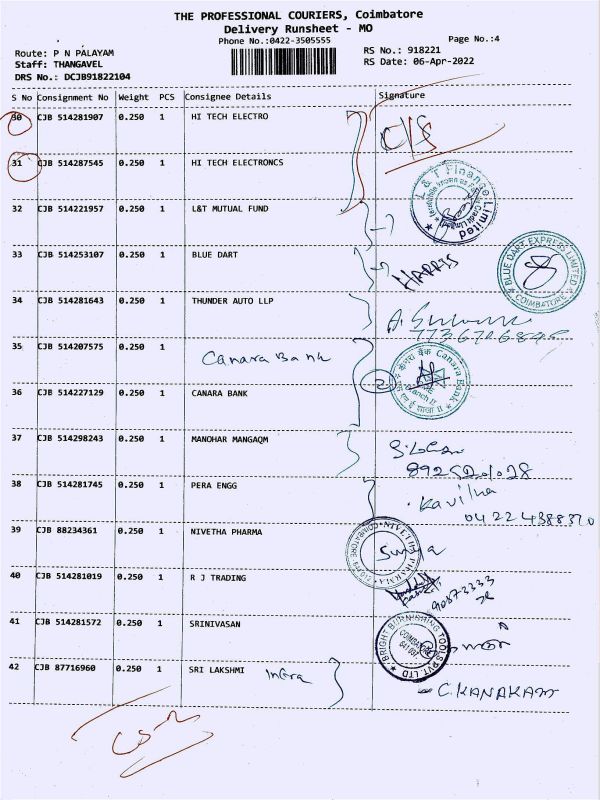 THE PROFESSIONAL COURIERS, Coimbatore
Delivery Runsheet - MO
Phone No.:0422-3505555
Page No.:4
Route: P N PALAYAM
RS No.: 918221
Staff: THANGAVEL
RS Date: 06-Apr-2022
DRS No.: DCJB91822104
S No Consignment No Weight PCS Consignee Details Signature
30 CJB 514281907 0.250 1 HI TECH ELECTRO
C/S
31 CJB 514287545 0.250 1 HI TECH ELECTRONICS
L & T Finance Limited
32 CJB 514221957 0.250 1 L&T MUTUAL FUND
33 CJB 514253107 0.250 1 BLUE DART
HARRIS
BLUE DART EXPRESS LIMITED
COIMBATORE
34 CJB 514281643 0.250 1 THUNDER AUTO LLP
35 CJB 514207575 0.250 1
Canara Bank
केनरा बैंक Canara Bank
2
36 CJB 514227129 0.250 1 CANARA BANK
37 CJB 514298243 0.250 1 MANOHAR MANGAQM
38 CJB 514281745 0.250 1 PERA ENGG
Kavitha
04224388370
39 CJB 88234361 0.250 1 NIVETHA PHARMA
Surya
40 CJB 514281019 0.250 1 R J TRADING
41 CJB 514281572 0.250 1 SRINIVASAN
BRIGHT BURNISHING TOOLS PVT. LTD
COIMBATORE
42 CJB 87716960 0.250 1 SRI LAKSHMI
Infra
C. KANAKAM